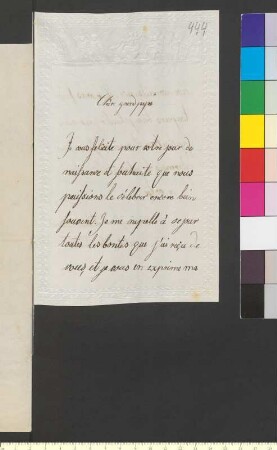 444
Cher grandpapa
Je vous felicite pour votre jour de
naissance et souhaite que nous
puissions le célébrer encore bien
souvent. Je me rappelle à ce jour
toutes les bontés que j'ai reçu de
vous et je vous en exprime ma